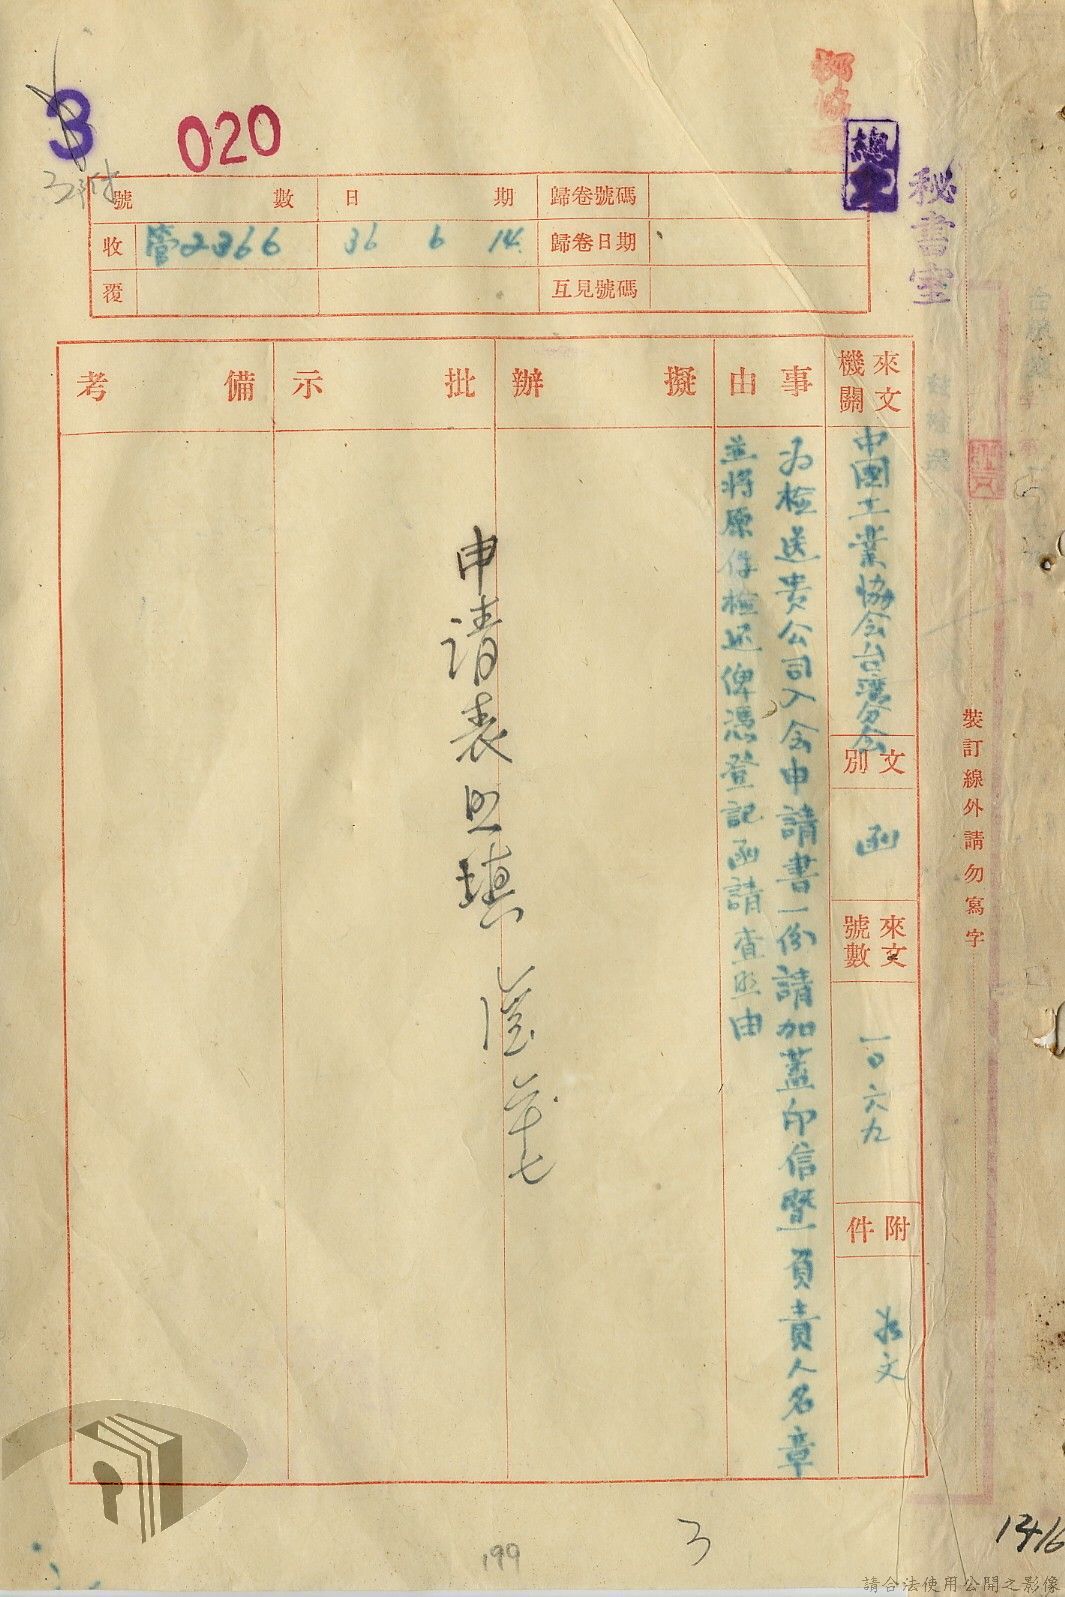 3
020
總
秘書室
號數 日期 歸卷號碼
收 管2366 36 6 14 歸卷日期
覆 互見號碼
來文機關
中國工業協会台湾分会
文別
函
來文號數
一〇六九
附件
文
事由
為檢送貴公司入会申請書一份請加蓋印信暨負責人名章
並將原件檢还俾憑登記函請查照由
擬辦
批示
申請表照填
備考
裝訂線外請勿寫字
199
3
1416
請合法使用公開之影像